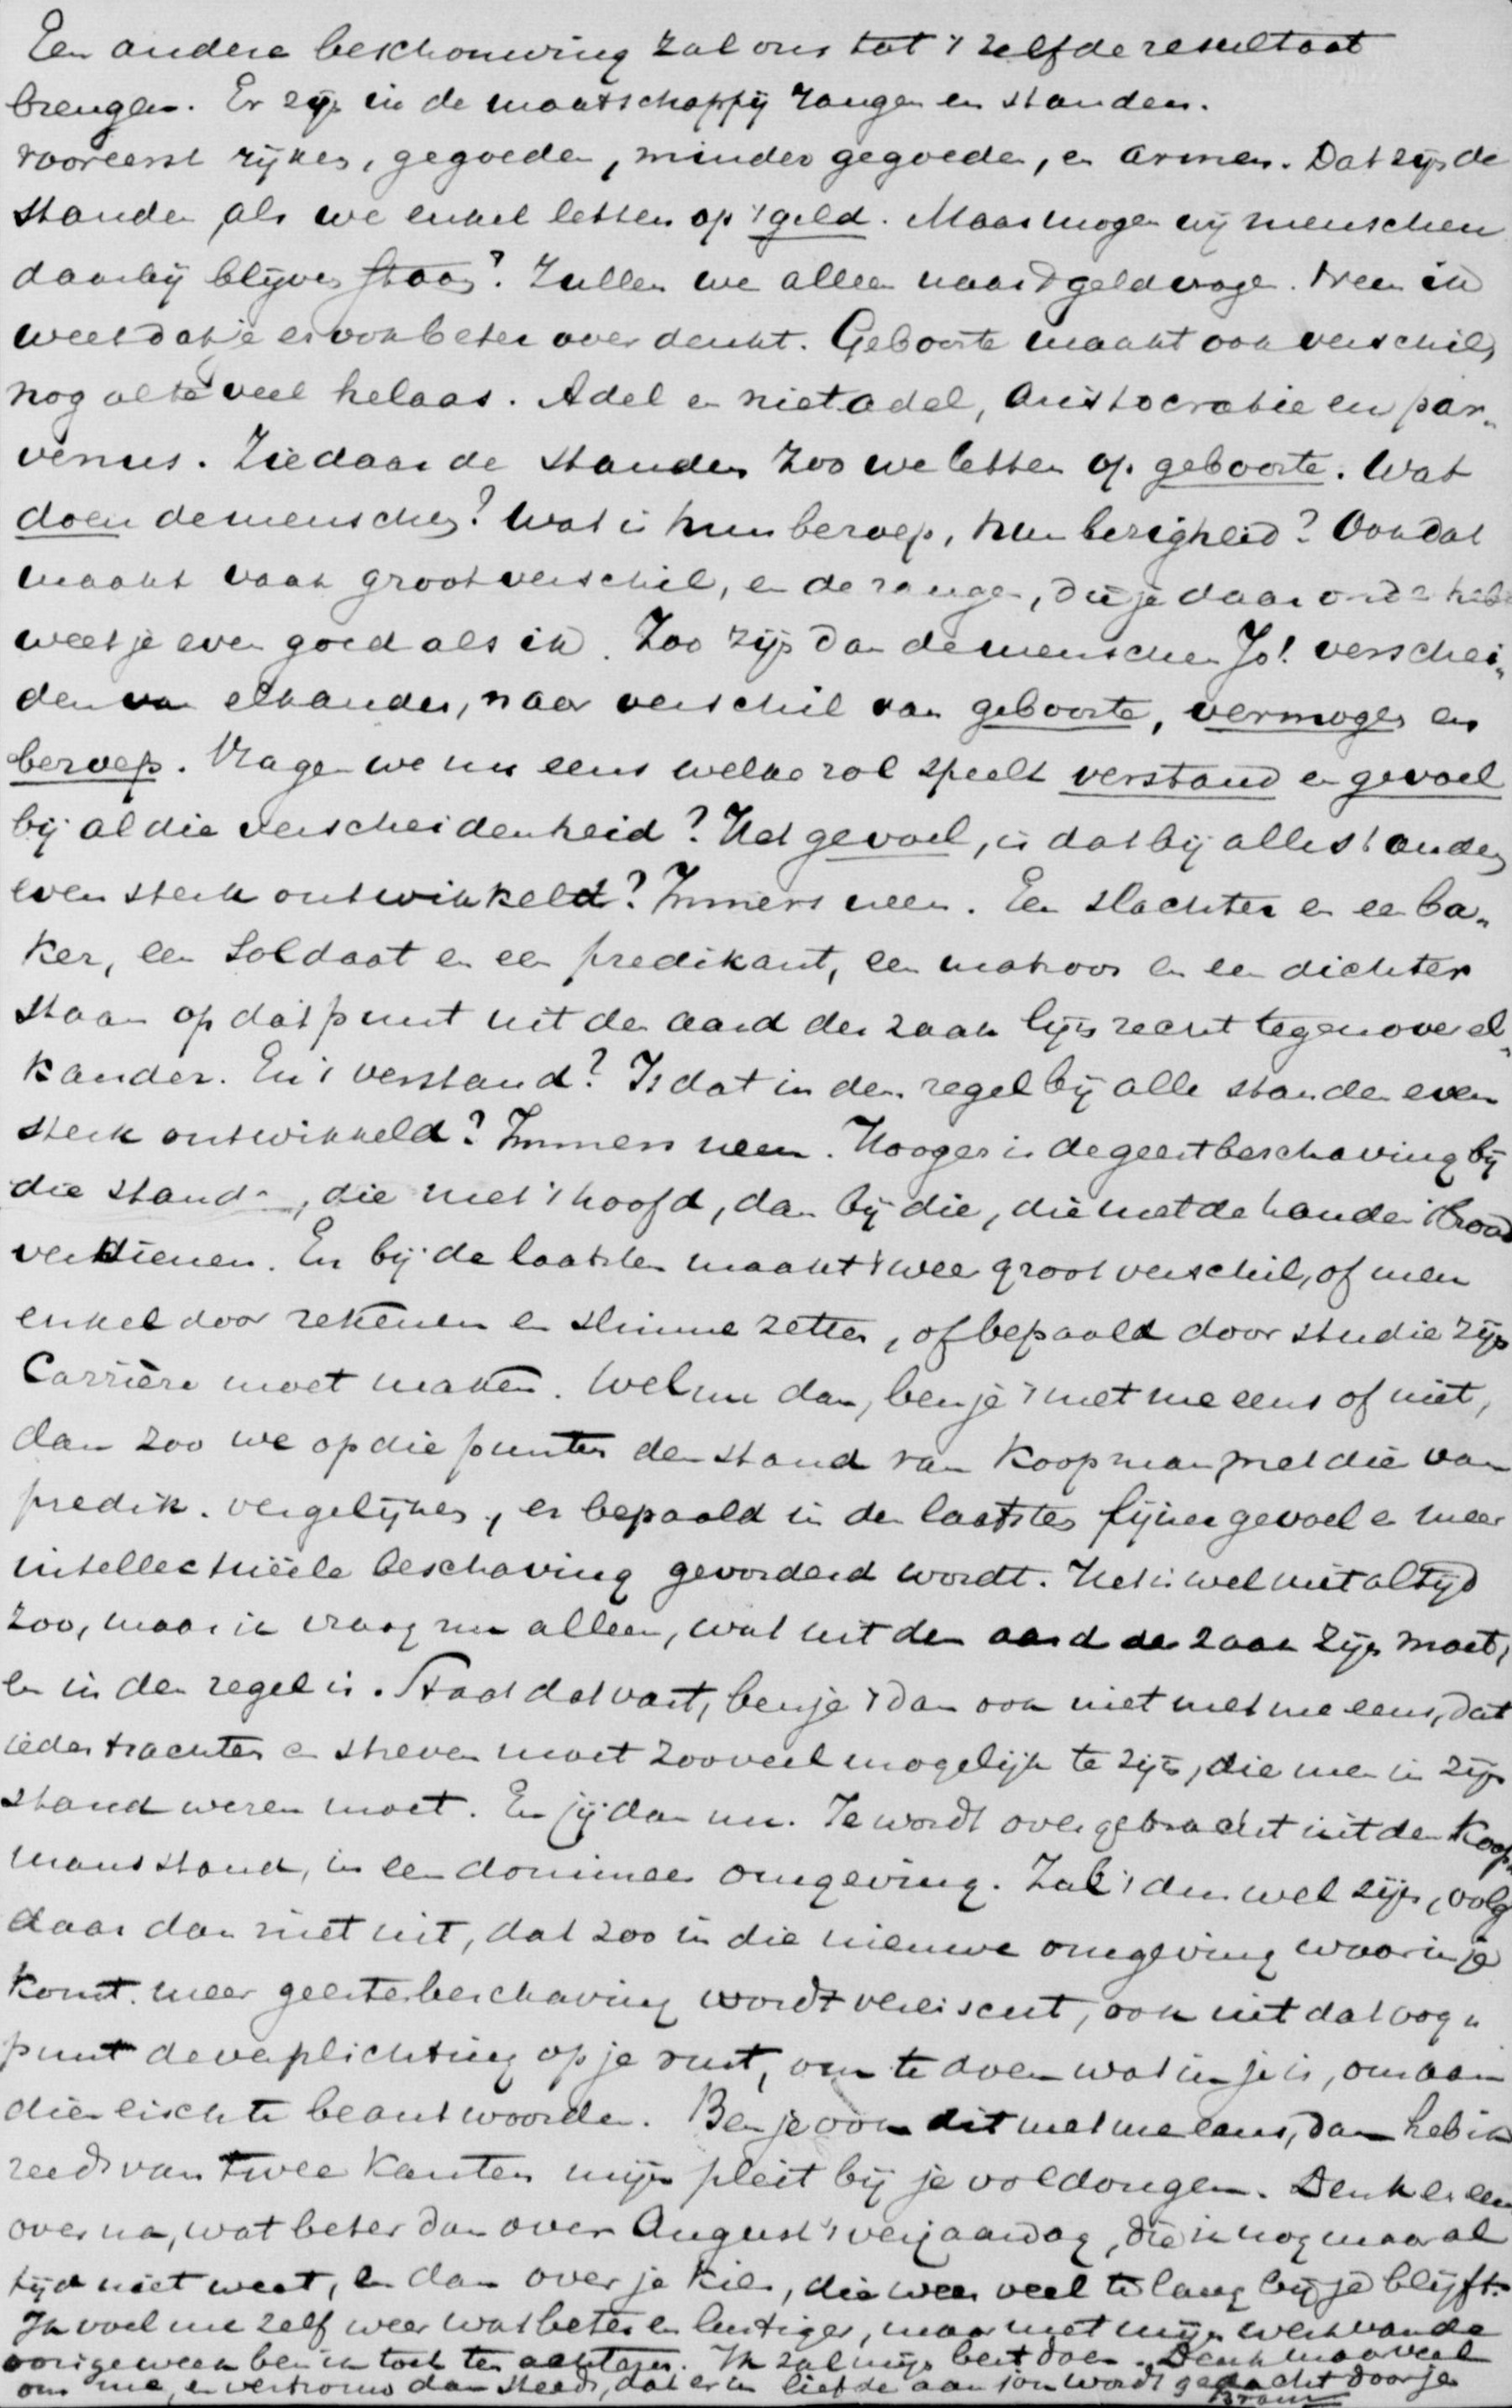 Een andere beschouwing zal ons tot 't zelfde resultaat
brengen. Er zijn in de maatschappij rangen en standen.
vooreerst rijken, gegoeden, minder gegoeden, en armen. Dat zijn de
standen als we enkel letten op 't geld. Maar mogen wij menschen
daarbij blijven staan? Zullen we alleen naar 't geld vragen. Neen ik
weet dat je er ook beter over denkt. Geboorte maakt ook verschil,
nog al te veel helaas. Adel en niet adel, aristocratie en par„
venus. Ziedaar de standen zoo we letten op geboorte. Wat
doen de menschen? Wat is hun beroep, hun bezigheid? Ook dat
maakt vaak groot verschil, en de rangen, die je daar onder hebt
weet je even goed als ik. Zoo zijn dan de menschen Jo! verschei„
den van elkander, naar verschil van geboorte, vermogen en
beroep. Vragen we nu eens welke rol speelt verstand en gevoel
bij al die verscheidenheid? Het gevoel, is dat bij alle standen
even sterk ontwikkeld? Immers neen. Een slachter en een ba„
ker, een Soldaat en een predikant, een matroos en een dichter
staan op dat punt uit den aard der zaak lijnrecht tegenover el„
kander. En 't verstand? Is dat in den regel bij alle standen even
sterk ontwikkeld? Immers neen. Hooger is de geestbeschaving bij
die standen, die met 't hoofd, dan bij die, die met de handen 't brood
verdienen. En bij de laatsten maakt 't weer groot verschil, of men
enkel door rekenen en slimme zetten, of bepaald door studie zijn
Carrière moet maken. Wel nu dan, ben je 't met me eens of niet,
dan zoo we op die punten den stand van Koopman met die van
predik. vergelijken, er bepaald in den laatsten fijner gevoel en meer
intellectuëele beschaving gevorderd wordt. Het is wel niet altijd
zoo, maar ik vraag nu alleen, wat uit den aard der zaak zijn moet,
en in den regel is. Staat dat vast, ben je 't dan ook niet met me eens, dat
ieder trachten en streven moet zooveel mogelijk te zijn, die men in zijn
stand wezen moet. En jij dan nu. Je wordt overgebracht uit den Koop„
mansstand, in een dominees omgeving. Zal 't dus wel zijn, volg
daar dan niet uit, dat zoo in die nieuwe omgeving waarin je
komt meer geestesbeschaving wordt vereischt, ook uit dat oog„
punt de verplichting op je rust, om te doen wat in je is, om aan
dien eisch te beantwoorden. Ben je ook dit met me eens, dan heb ik
reeds van twee kanten mijn pleit bij je voldongen. Denk er eens
over na, wat beter dan over August's verjaardag, die ik nog maar al
tijd niet weet, en dan over je kies, die weer veel te lang bij je blijft.
Ik voel me zelf weer wat beter en lustiger, maar met mijn werk van de
vorige week ben ik toch ten achteren. Ik zal mijn best doen. Denk maar veel
om me, en vertrouw dan steeds, dat er in liefde aan jou wordt gedacht door je
Bram